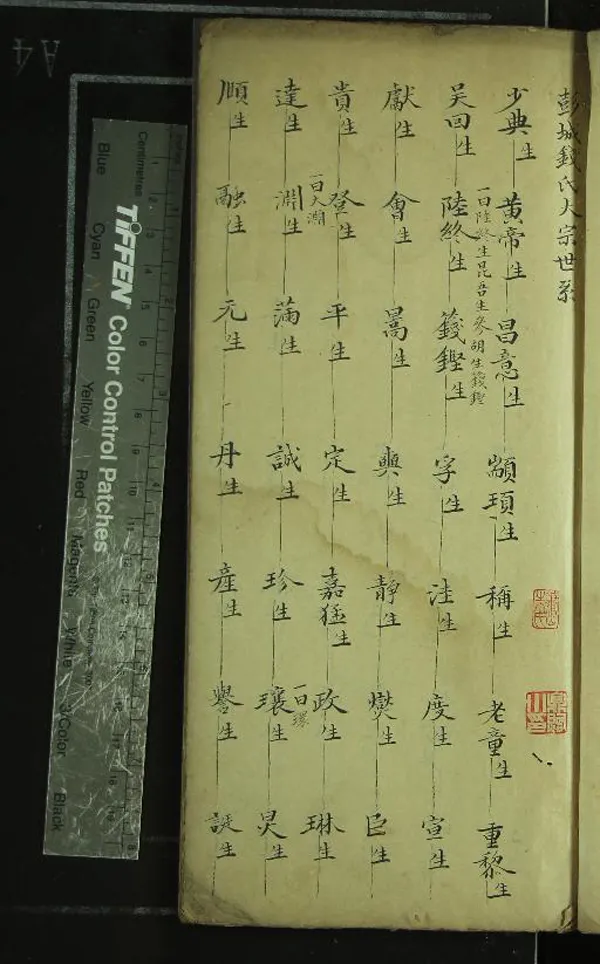 彭城錢氏大宗世系
少典生 黃帝生 昌意生 顓頊生 稱生 老童生 重黎生
吳回生 陸終生 籛鏗生 孚生 洼生 度生 宣生
一曰陸終生昆吾生參胡生籛鏗
獻生 會生 暠生 輿生 靜生 爕生 臣生
貴生 登生 平生 定生 嘉猛生 政生 琳生
達生 淵生 滿生 誠生 珍生 瓌生 炅生
一曰大淵
一曰環
順生 融生 元生 丹生 產生 譽生 誕生
A4
Centimetres
Inches
TIFFEN Color Control Patches
Blue
Cyan
Green
Yellow
Red
Magenta
White
3/Color
Black